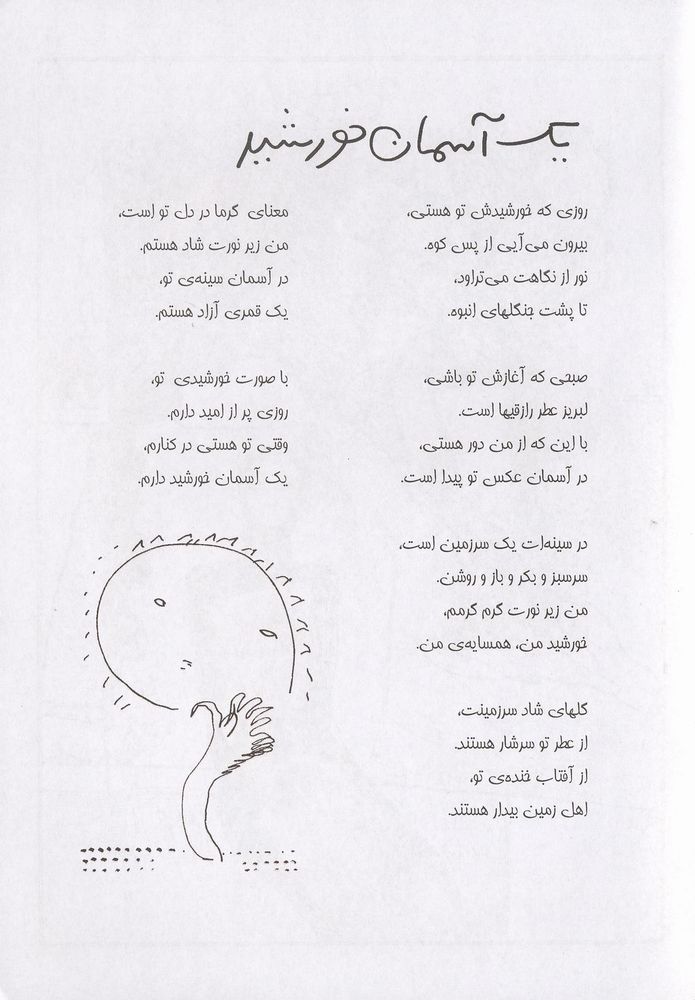 یک آسمان خورشید
روزی که خورشیدش تو هستی،
بیرون می‌آیی از پس کوه.
نور از نگاهت می‌تراود،
تا پشت جنگلهای انبوه.
صبحی که آغازش تو باشی،
لبریز عطر رازقیها است.
با این که از من دور هستی،
در آسمان عکس تو پیدا است.
در سینه‌ات یک سرزمین است،
سرسبز و بکر و باز و روشن.
من زیر نورت گرم گرمم،
خورشید من، همسایه‌ی من.
گلهای شاد سرزمینت،
از عطر تو سرشار هستند.
از آفتاب خنده‌ی تو،
اهل زمین بیدار هستند.
معنای گرما در دل تو است،
من زیر نورت شاد هستم.
در آسمان سینه‌ی تو،
یک قمری آزاد هستم.
با صورت خورشیدی تو،
روزی پر از امید دارم.
وقتی تو هستی در کنارم،
یک آسمان خورشید دارم.